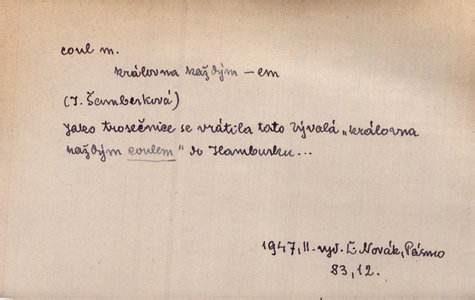 coul m.
královna každým –em
(J. Šemberková)
Jako trosečnice se vrátila tato bývalá „královna
každým coulem" do Hamburku...
1947, II. vyd. L. Novák, Pásmo
83, 12.